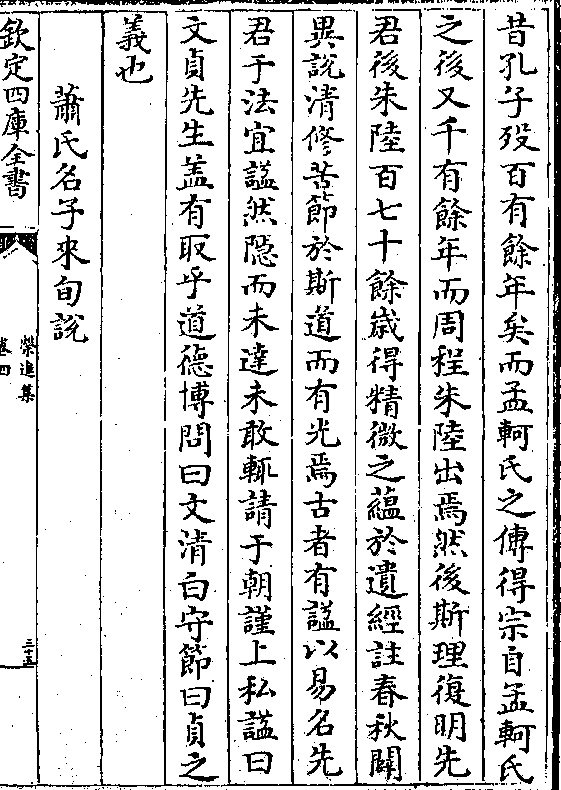 昔孔子歿百有餘年矣而孟軻氏之傳得宗自孟軻氏
之後又千有餘年而周程朱陸出焉然後斯理復明先
君後朱陸百七十餘歲得精微之蘊於遺經註春秋闢
異說清修苦節於斯道而有光焉古者有謚以易名先
君于法宜謚然隠而未達未敢輒請于朝謹上私謚曰
文貞先生盖有取乎道德博問曰文清白守節曰貞之
義也
蕭氏名子來旬說
欽定四庫全書
榮進集
卷四
三十五